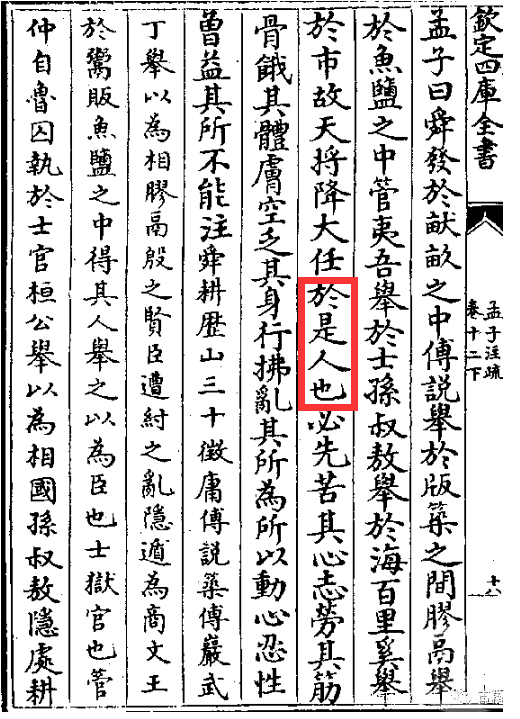 欽定四庫全書
孟子注疏
卷十二下
十八
孟子曰舜發於畎畝之中傅說舉於版築之間膠鬲舉
於魚鹽之中管夷吾舉於士孫叔敖舉於海百里奚舉
於市故天將降大任於是人也必先苦其心志勞其筋
骨餓其體膚空乏其身行拂亂其所為所以動心忍性
曾益其所不能注舜耕歴山三十徵庸傅說築傅巖武
丁舉以為相膠鬲殷之賢臣遭紂之亂隱遁為商文王
於鬻販魚鹽之中得其人舉之以為臣也士獄官也管
仲自魯囚執於士官桓公舉以為相國孫叔敖隱處耕